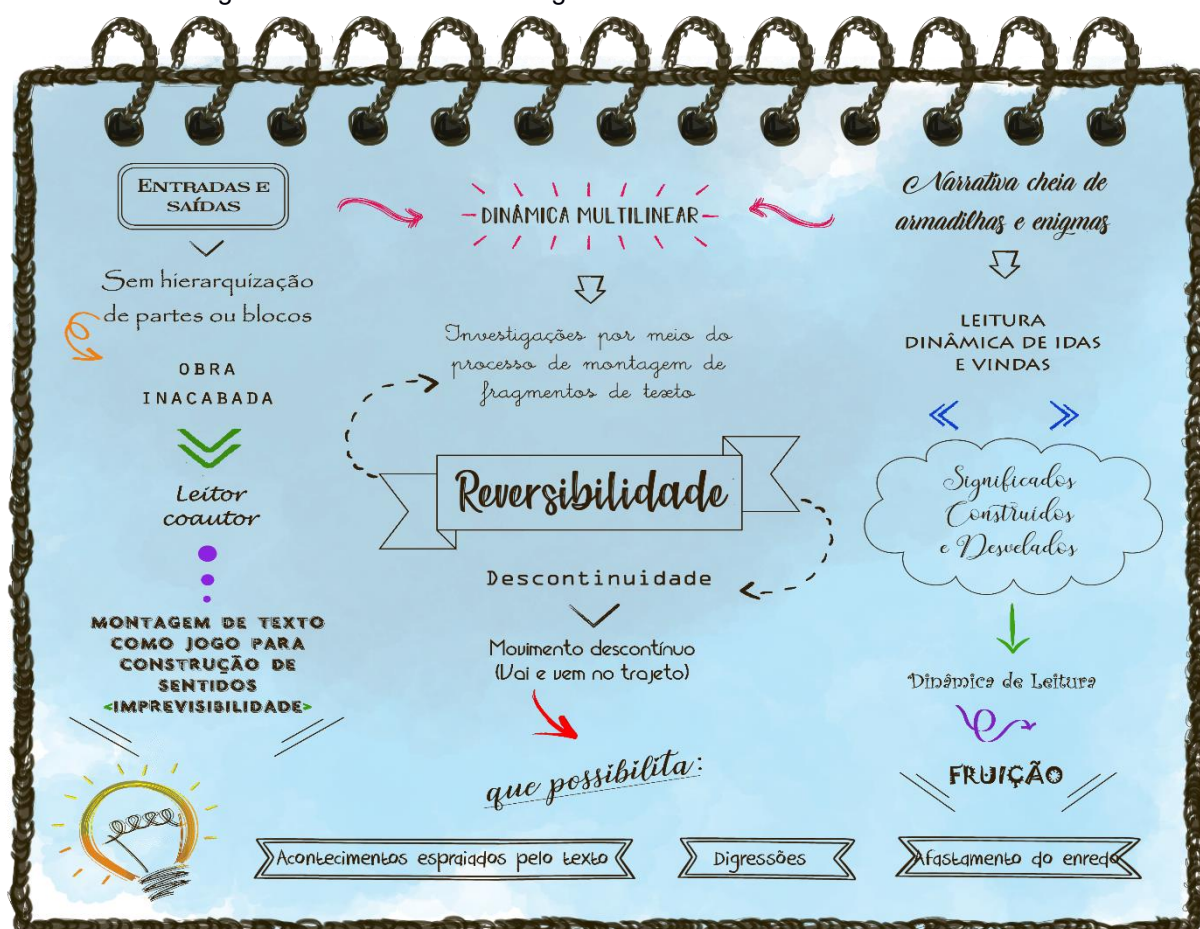 ENTRADAS E
SAÍDAS
Sem hierarquização
de partes ou blocos
OBRA
INACABADA
Leitor
coautor
MONTAGEM DE TEXTO
COMO JOGO PARA
CONSTRUÇÃO DE
SENTIDOS
<IMPREVISIBILIDADE>
DINÂMICA MULTILINEAR
Investigações por meio do
processo de montagem de
fragmentos de texto
Reversibilidade
Descontinuidade
Movimento descontínuo
(Vai e vem no trajeto)
que possibilita:
Narrativa cheia de
armadilhas e enigmas
LEITURA
DINÂMICA DE IDAS
E VINDAS
Significados
Construídos
e Desvelados
Dinâmica de Leitura
FRUIÇÃO
Acontecimentos espraiados pelo texto
Digressões
Afastamento do enredo